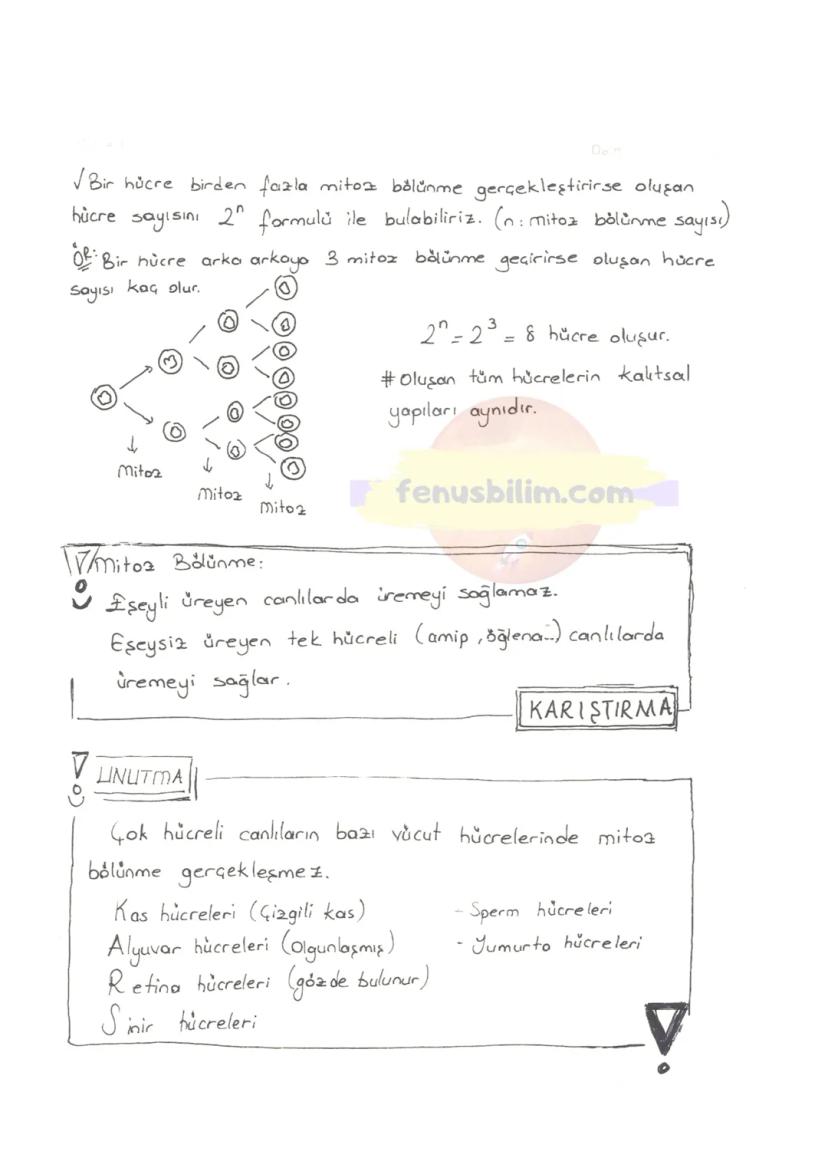 √ Bir hücre birden fazla mitoz bölünme gerçekleştirirse oluşan
hücre sayısını 2ⁿ formulü ile bulabiliriz. (n: mitoz bölünme sayısı)
ÖR: Bir hücre arka arkaya 3 mitoz bölünme geçirirse oluşan hücre
sayısı kaç olur.
2ⁿ = 2³ = 8 hücre oluşur.
# Oluşan tüm hücrelerin kalıtsal
yapıları aynıdır.
Mitoz
Mitoz
Mitoz
fenusbilim.com
Mitoz Bölünme:
Eşeyli üreyen canlılarda üremeyi sağlamaz.
Eşeysiz üreyen tek hücreli (amip, öğlena..) canlılarda
üremeyi sağlar.
KARIŞTIRMA
UNUTMA
Çok hücreli canlıların bazı vücut hücrelerinde mitoz
bölünme gerçekleşmez.
Kas hücreleri (Çizgili kas)
Alyuvar hücreleri (Olgunlaşmış)
Retina hücreleri (gözde bulunur)
Sinir hücreleri
- Sperm hücreleri
- Yumurta hücreleri